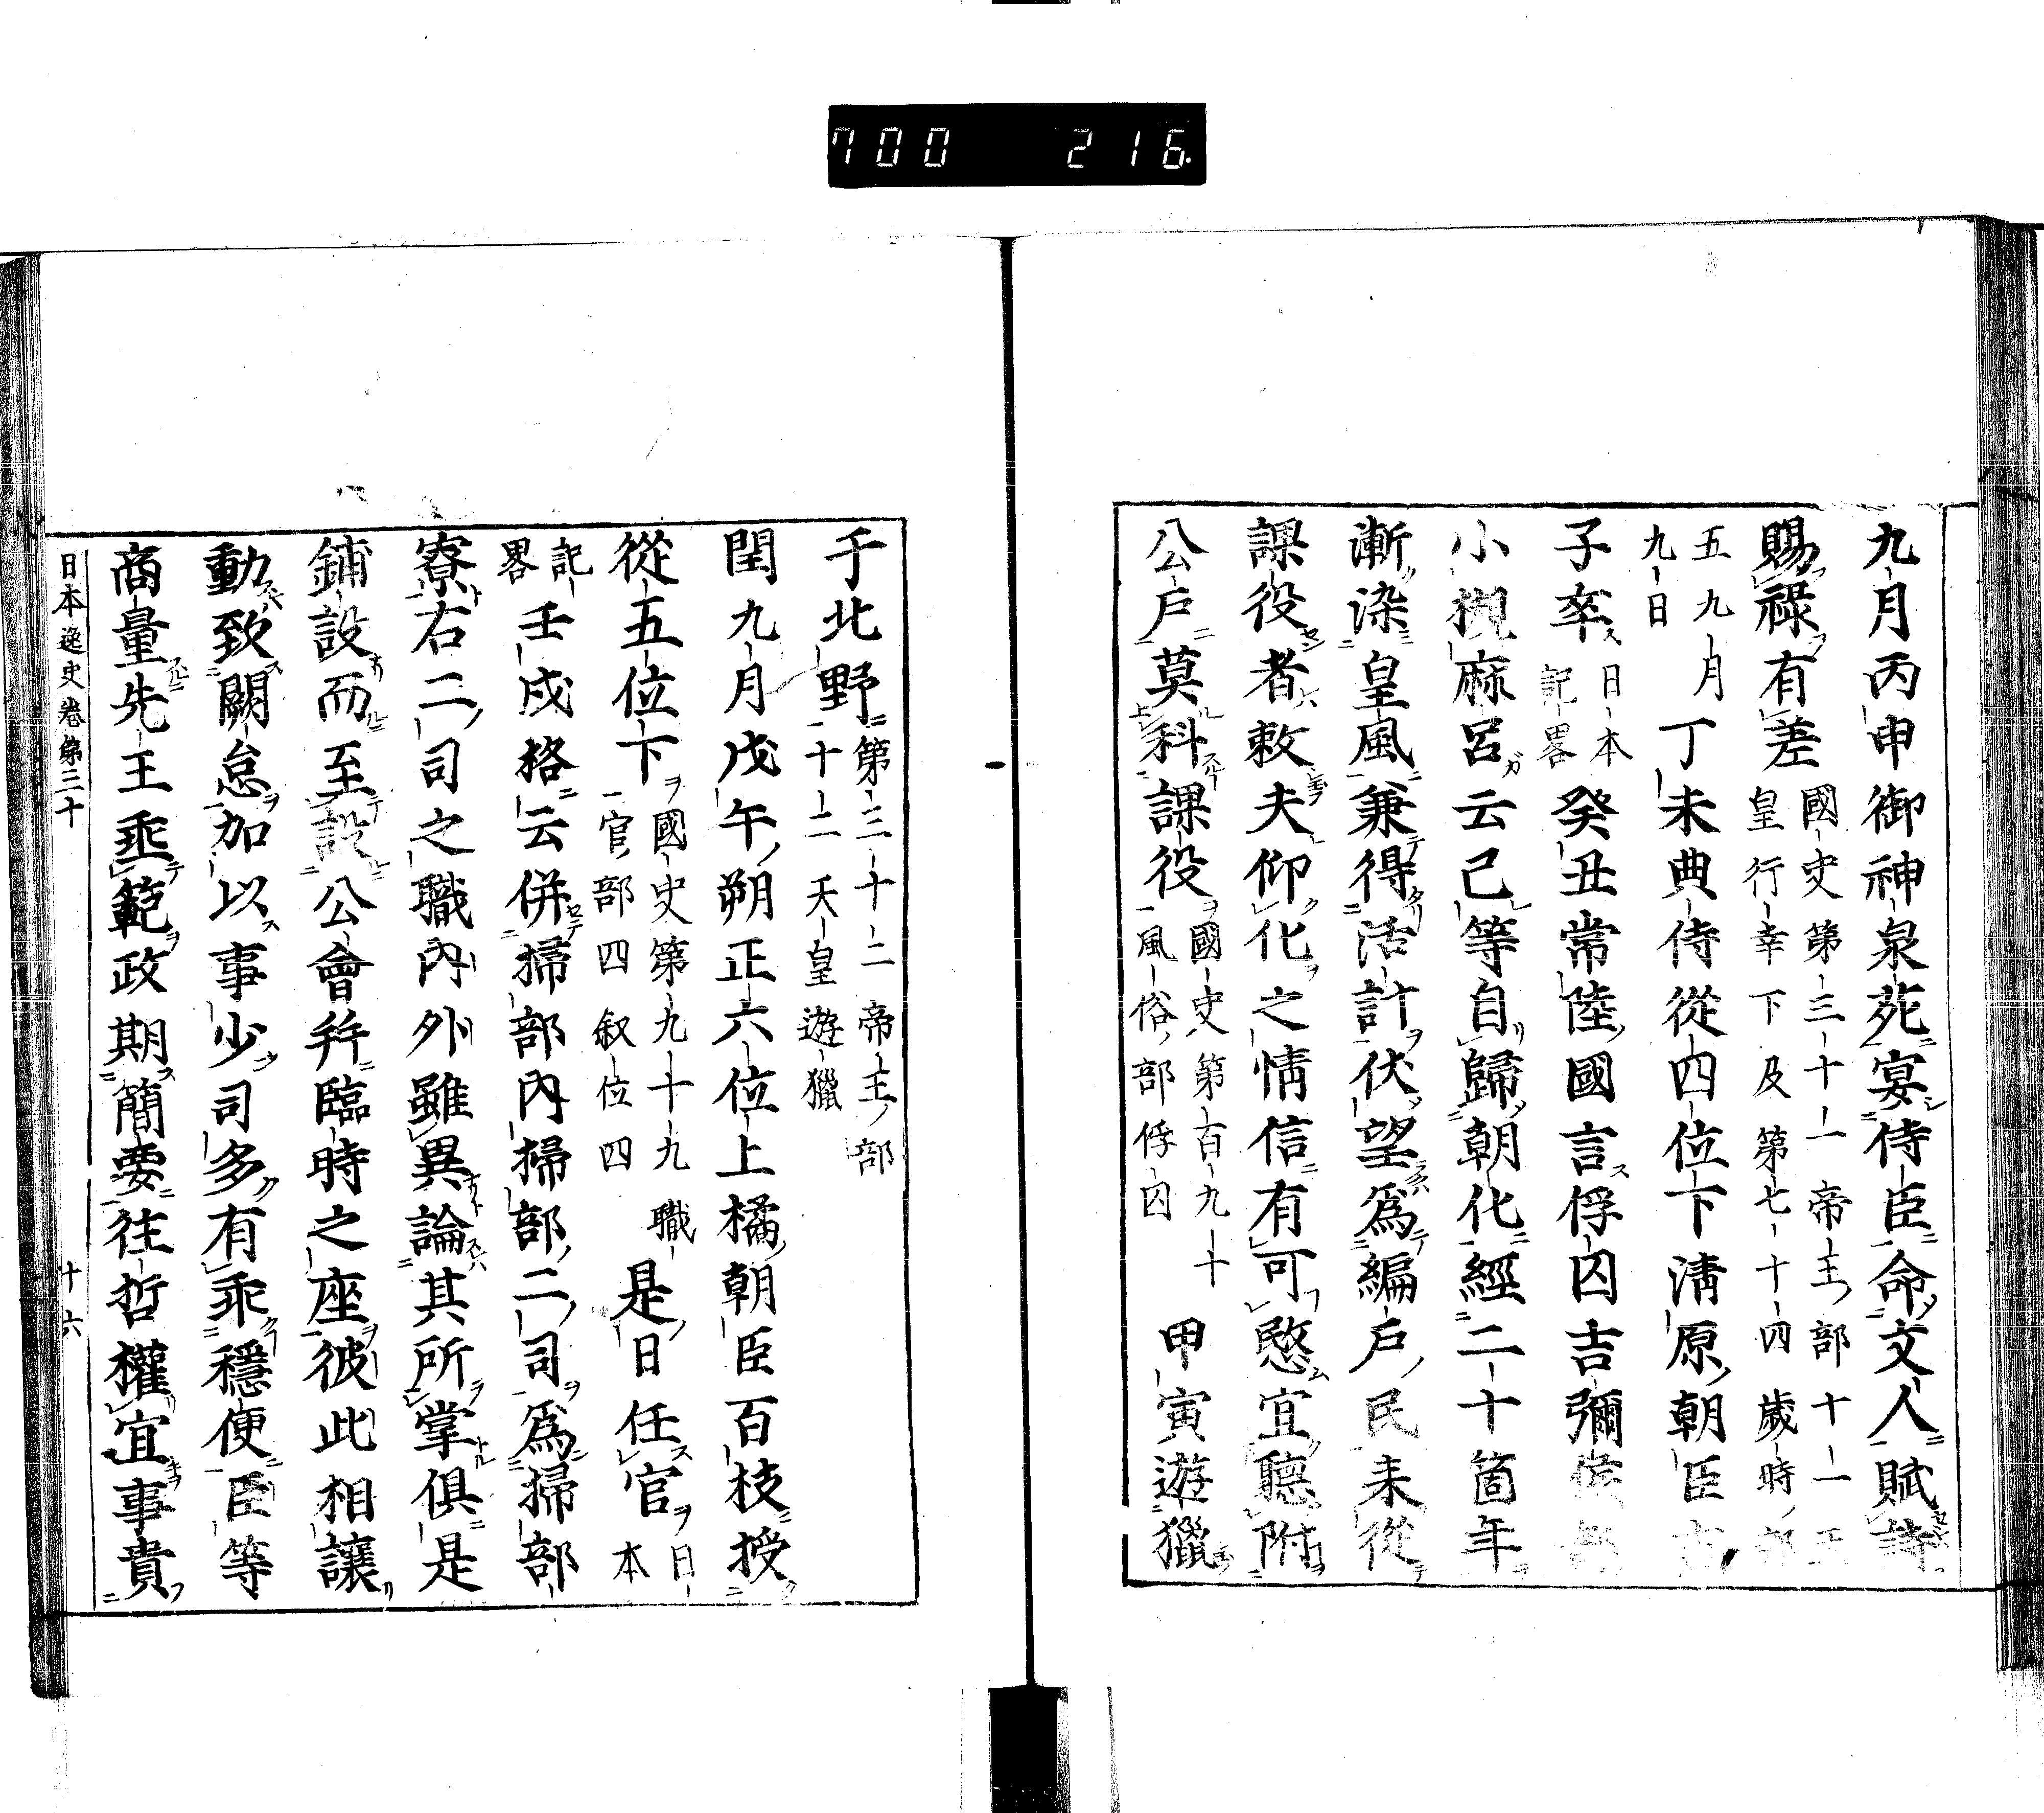 700 216
九月丙申御神泉苑宴侍臣命文人賦詩
賜祿有差 國史第三十一帝王部十一 皇行幸下及第七十四歲時部
五九月九日 丁未典侍從四位下淸原朝臣
子卒 日本記畧 癸丑常陸國言俘囚吉彌侯部
小槻麻呂云己等自歸朝化經二十箇年
漸染皇風兼得活計伏望爲編戶民末從
課役者敕夫仰化之情信有可愍宜聽附
公戶莫科課役 國史第百九十風俗部俘囚 甲寅遊獵
于北野 第三十二帝王部十二天皇遊獵
閏九月戊午朔正六位上橘朝臣百枝授
從五位下 國史第九十九職官部四敘位四 是日任官 日本
記畧 壬戌格云併掃部內掃部二司爲掃部
寮右二司之職內外雖異論其所掌俱是
鋪設而至設公會幷臨時之座彼此相讓
動致闕怠加以事少司多有乖穩便臣等
商量先王垂範政期簡要往哲權宜事貴
日本逸史卷第三十 十六